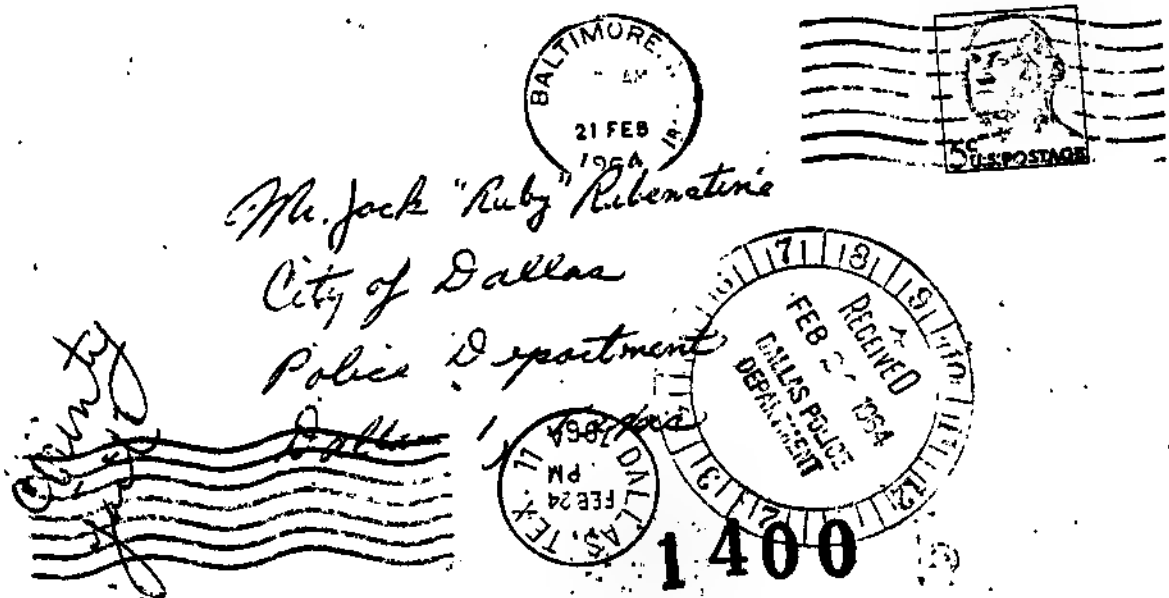 BALTIMORE,
AM
21 FEB
1964
5¢ U.S. POSTAGE
Mr. Jack "Ruby" Rubenstine
City of Dallas
Police Department
Dallas 1, Texas
County
Jail
7 8 9 10 11 12 1 2 3
RECEIVED
FEB 1964
DALLAS POLICE
DEPARTMENT
DALLAS, TEX. 11
FEB 24
PM
1964
1400